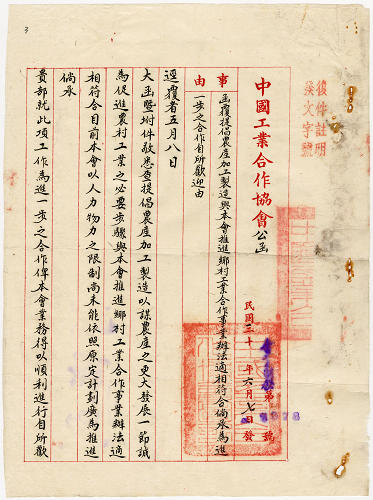 復件註明
發文字號
中國工業合作協會公函
民國三十年六月七日發
第 號
事
由
函覆提倡農產加工製造與本會推進鄉村工業合作事業辦法適相符合倘承為進
一步之合作自所歡迎由
逕覆者五月八日
大函暨附件敬悉查提倡農產加工製造以謀農產之更大發展一節誠
為促進農村工業之必要步驟與本會推進鄉村工業合作事業辦法適
相符合目前本會以人力物力之限制尚未能依照原定計劃廣為推進
倘承
貴部就此項工作為進一步之合作俾本會業務得以順利進行自所歡
3